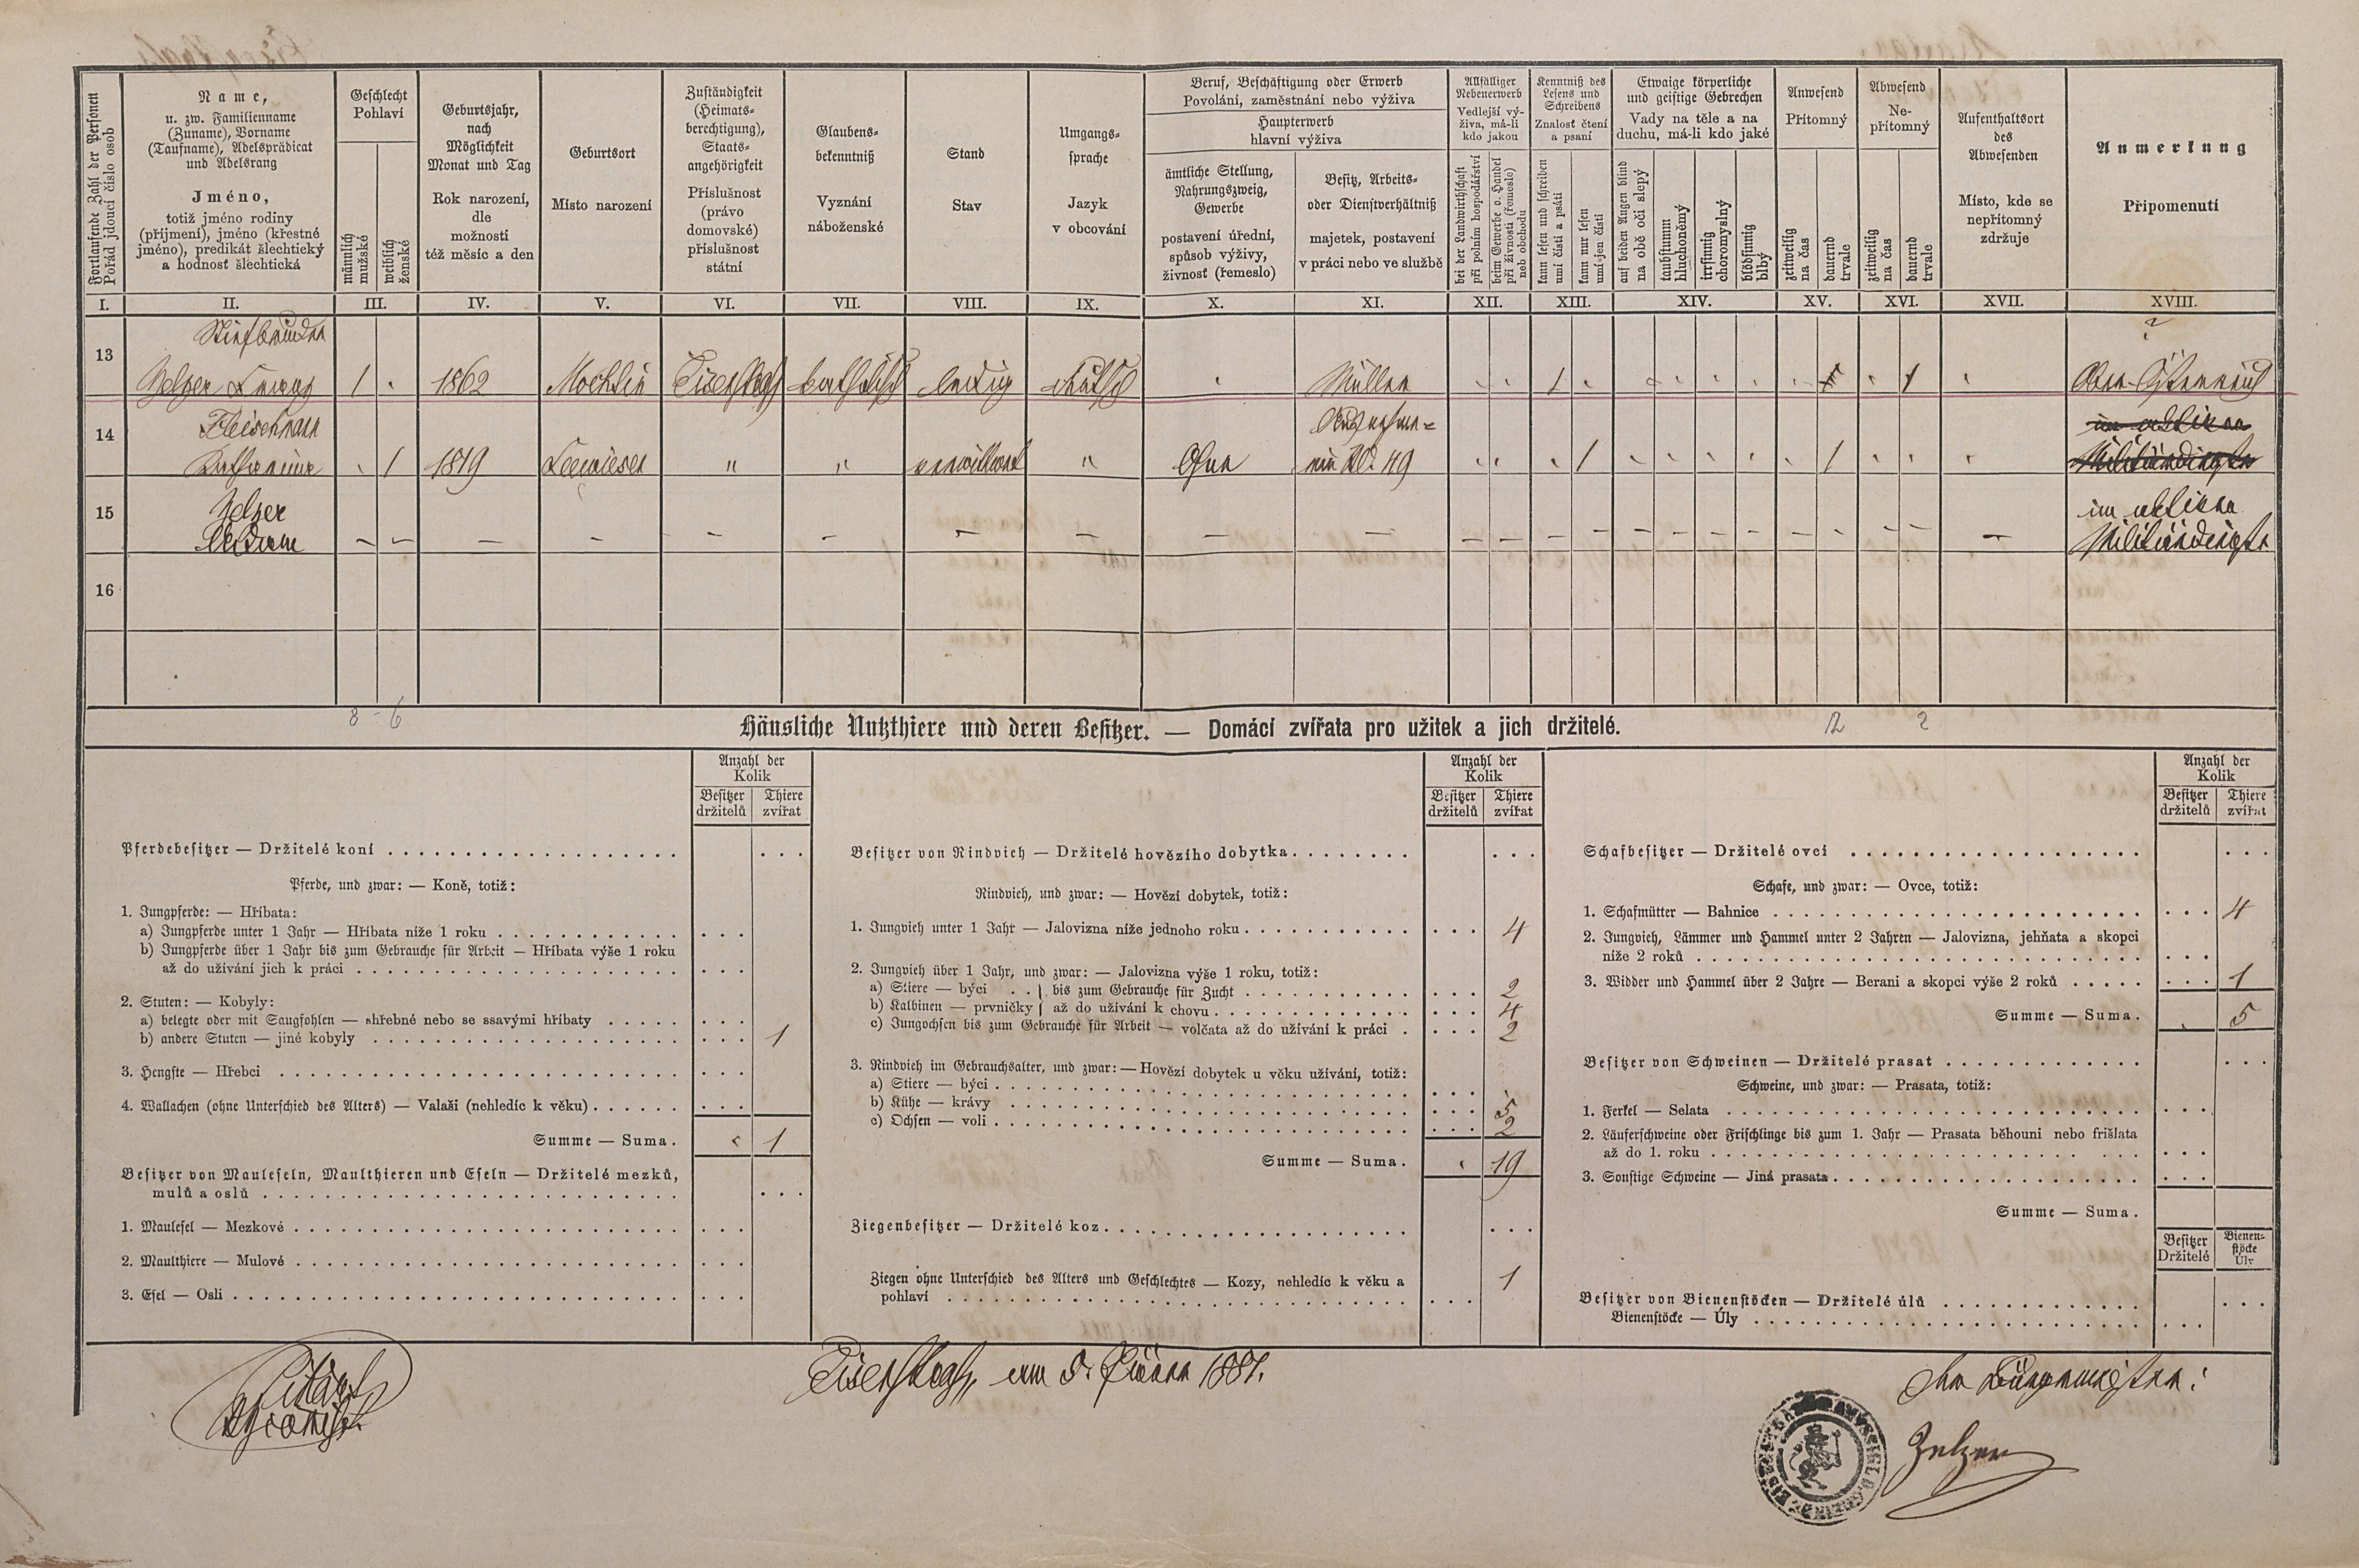 Fortlaufende Zahl der Personen
Pořád jdoucí číslo osob
Name,
u. zw. Familienname
(Zuname), Vorname
(Taufname), Adelsprädicat
und Adelsrang
Jméno,
totiž jméno rodiny
(příjmení), jméno (křestné
jméno), predikát šlechtický
a hodnosť šlechtická
Geschlecht
Pohlaví
männlich
mužské
weiblich
ženské
Geburtsjahr,
nach
Möglichkeit
Monat und Tag
Rok narození,
dle
možnosti
též měsíc a den
Geburtsort
Místo narození
Zuständigkeit
(Heimats-
berechtigung),
Staats-
angehörigkeit
Příslušnost
(právo
domovské)
příslušnost
státní
Glaubens-
bekenntniß
Vyznání
náboženské
Stand
Stav
Umgangs-
sprache
Jazyk
v obcování
Beruf, Beschäftigung oder Erwerb
Povolání, zaměstnání nebo výživa
Haupterwerb
hlavní výživa
ämtliche Stellung,
Nahrungszweig,
Gewerbe
postavení úřední,
spůsob výživy,
živnosť (řemeslo)
Besitz, Arbeits-
oder Dienstverhältniß
majetek, postavení
v práci nebo ve službě
Allfälliger
Nebenerwerb
Vedlejší vý-
živa, má-li
kdo jakou
bei der Landwirthschaft
při polním hospodářství
beim Gewerbe o. Handel
při živnosti (řemesle)
neb obchodu
Kenntniß des
Lesens und
Schreibens
Znalosť čtení
a psaní
kann lesen und schreiben
umí čísti a psáti
kann nur lesen
umí jen čísti
Etwaige körperliche
und geistige Gebrechen
Vady na těle a na
duchu, má-li kdo jaké
auf beiden Augen blind
na obě oči slepý
taubstumm
hluchoněmý
irrsinnig
choromyslný
blödsinnig
blbý
Anwesend
Přítomný
zeitweilig
na čas
dauernd
trvale
Abwesend
Ne-
přítomný
zeitweilig
na čas
dauernd
trvale
Aufenthaltsort
des
Abwesenden
Místo, kde se
nepřítomný
zdržuje
Anmerkung
Připomenutí
I. II. III. IV. V. VI. VII. VIII. IX. X. XI. XII. XIII. XIV. XV. XVI. XVII. XVIII.
Stiefbruder ?
13 Zelzer 1 1862 Mochtin Eisenstraß katholisch ledig deutsch Müller 1 1 Ober-Österreich
Fleischmann
14 Katharina 1 1819 " " verwittwet " 1 1 Militärdienste
15 Zelzer im aktiven
– – – – – – – – – – – – – – – – – – – – Militärdienste
16
8 - 6 12 2
Häusliche Nutzthiere und deren Besitzer. — Domácí zvířata pro užitek a jich držitelé.
Anzahl der
Kolik
Besitzer Thiere
držitelů zvířat
Pferdebesitzer — Držitelé koní
Pferde, und zwar: — Koně, totiž:
1. Jungpferde: — Hříbata:
a) Jungpferde unter 1 Jahr — Hříbata níže 1 roku
b) Jungpferde über 1 Jahr bis zum Gebrauche für Arbeit — Hříbata výše 1 roku
až do užívání jich k práci
2. Stuten: — Kobyly:
a) belegte oder mit Saugfohlen — shřebné nebo se ssavými hříbaty
b) andere Stuten — jiné kobyly 1
3. Hengste — Hřebci
4. Wallachen (ohne Unterschied des Alters) — Valaši (nehledíc k věku)
Summe — Suma. 1
Besitzer von Mauleseln, Maulthieren und Eseln — Držitelé mezků,
mulů a oslů
1. Maulesel — Mezkové
2. Maulthiere — Mulové
3. Esel — Osli
Anzahl der
Kolik
Besitzer Thiere
držitelů zvířat
Besitzer von Rindvieh — Držitelé hovězího dobytka
Rindvieh, und zwar: — Hovězí dobytek, totiž:
1. Jungvieh unter 1 Jahr — Jalovizna níže jednoho roku 4
2. Jungvieh über 1 Jahr, und zwar: — Jalovizna výše 1 roku, totiž:
a) Stiere — býci . . } bis zum Gebrauche für Zucht 2
b) Kalbinen — prvničky } až do užívání k chovu 4
c) Jungochsen bis zum Gebrauche für Arbeit — volčata až do užívání k práci 2
3. Rindvieh im Gebrauchsalter, und zwar: — Hovězí dobytek u věku užívání, totiž:
a) Stiere — býci
b) Kühe — krávy 5
c) Ochsen — voli 2
Summe — Suma. 19
Ziegenbesitzer — Držitelé koz
Ziegen ohne Unterschied des Alters und Geschlechtes — Kozy, nehledíc k věku a 1
pohlaví
Anzahl der
Kolik
Besitzer Thiere
držitelů zvířat
Schafbesitzer — Držitelé ovcí
Schafe, und zwar: — Ovce, totiž:
1. Schafmütter — Bahnice 4
2. Jungvieh, Lämmer und Hammel unter 2 Jahren — Jalovizna, jehňata a skopci
níže 2 roků
3. Widder und Hammel über 2 Jahre — Berani a skopci výše 2 roků 1
Summe — Suma. 5
Besitzer von Schweinen — Držitelé prasat
Schweine, und zwar: — Prasata, totiž:
1. Ferkel — Selata
2. Läuferschweine oder Frischlinge bis zum 1. Jahr — Prasata běhouni nebo frišlata
až do 1. roku
3. Sonstige Schweine — Jiná prasata
Summe — Suma.
Besitzer Bienen-
Držitelé stöcke
Úly
Besitzer von Bienenstöcken — Držitelé úlů
Bienenstöcke — Úly
Eisenstraß, am 5. Jänner 1881.
Der Bürgermeister:
Zelzer